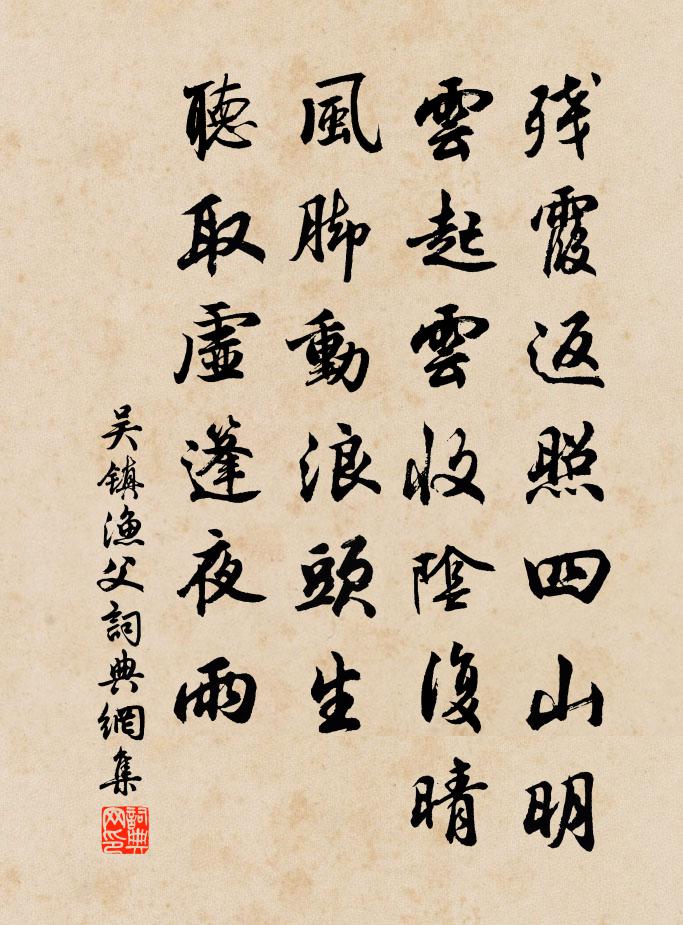 残霞返照四山明
雲起雲收陰復晴
風脚動浪頭生
聽取虛篷夜雨
吴镇漁父詞典網集
詞典网印